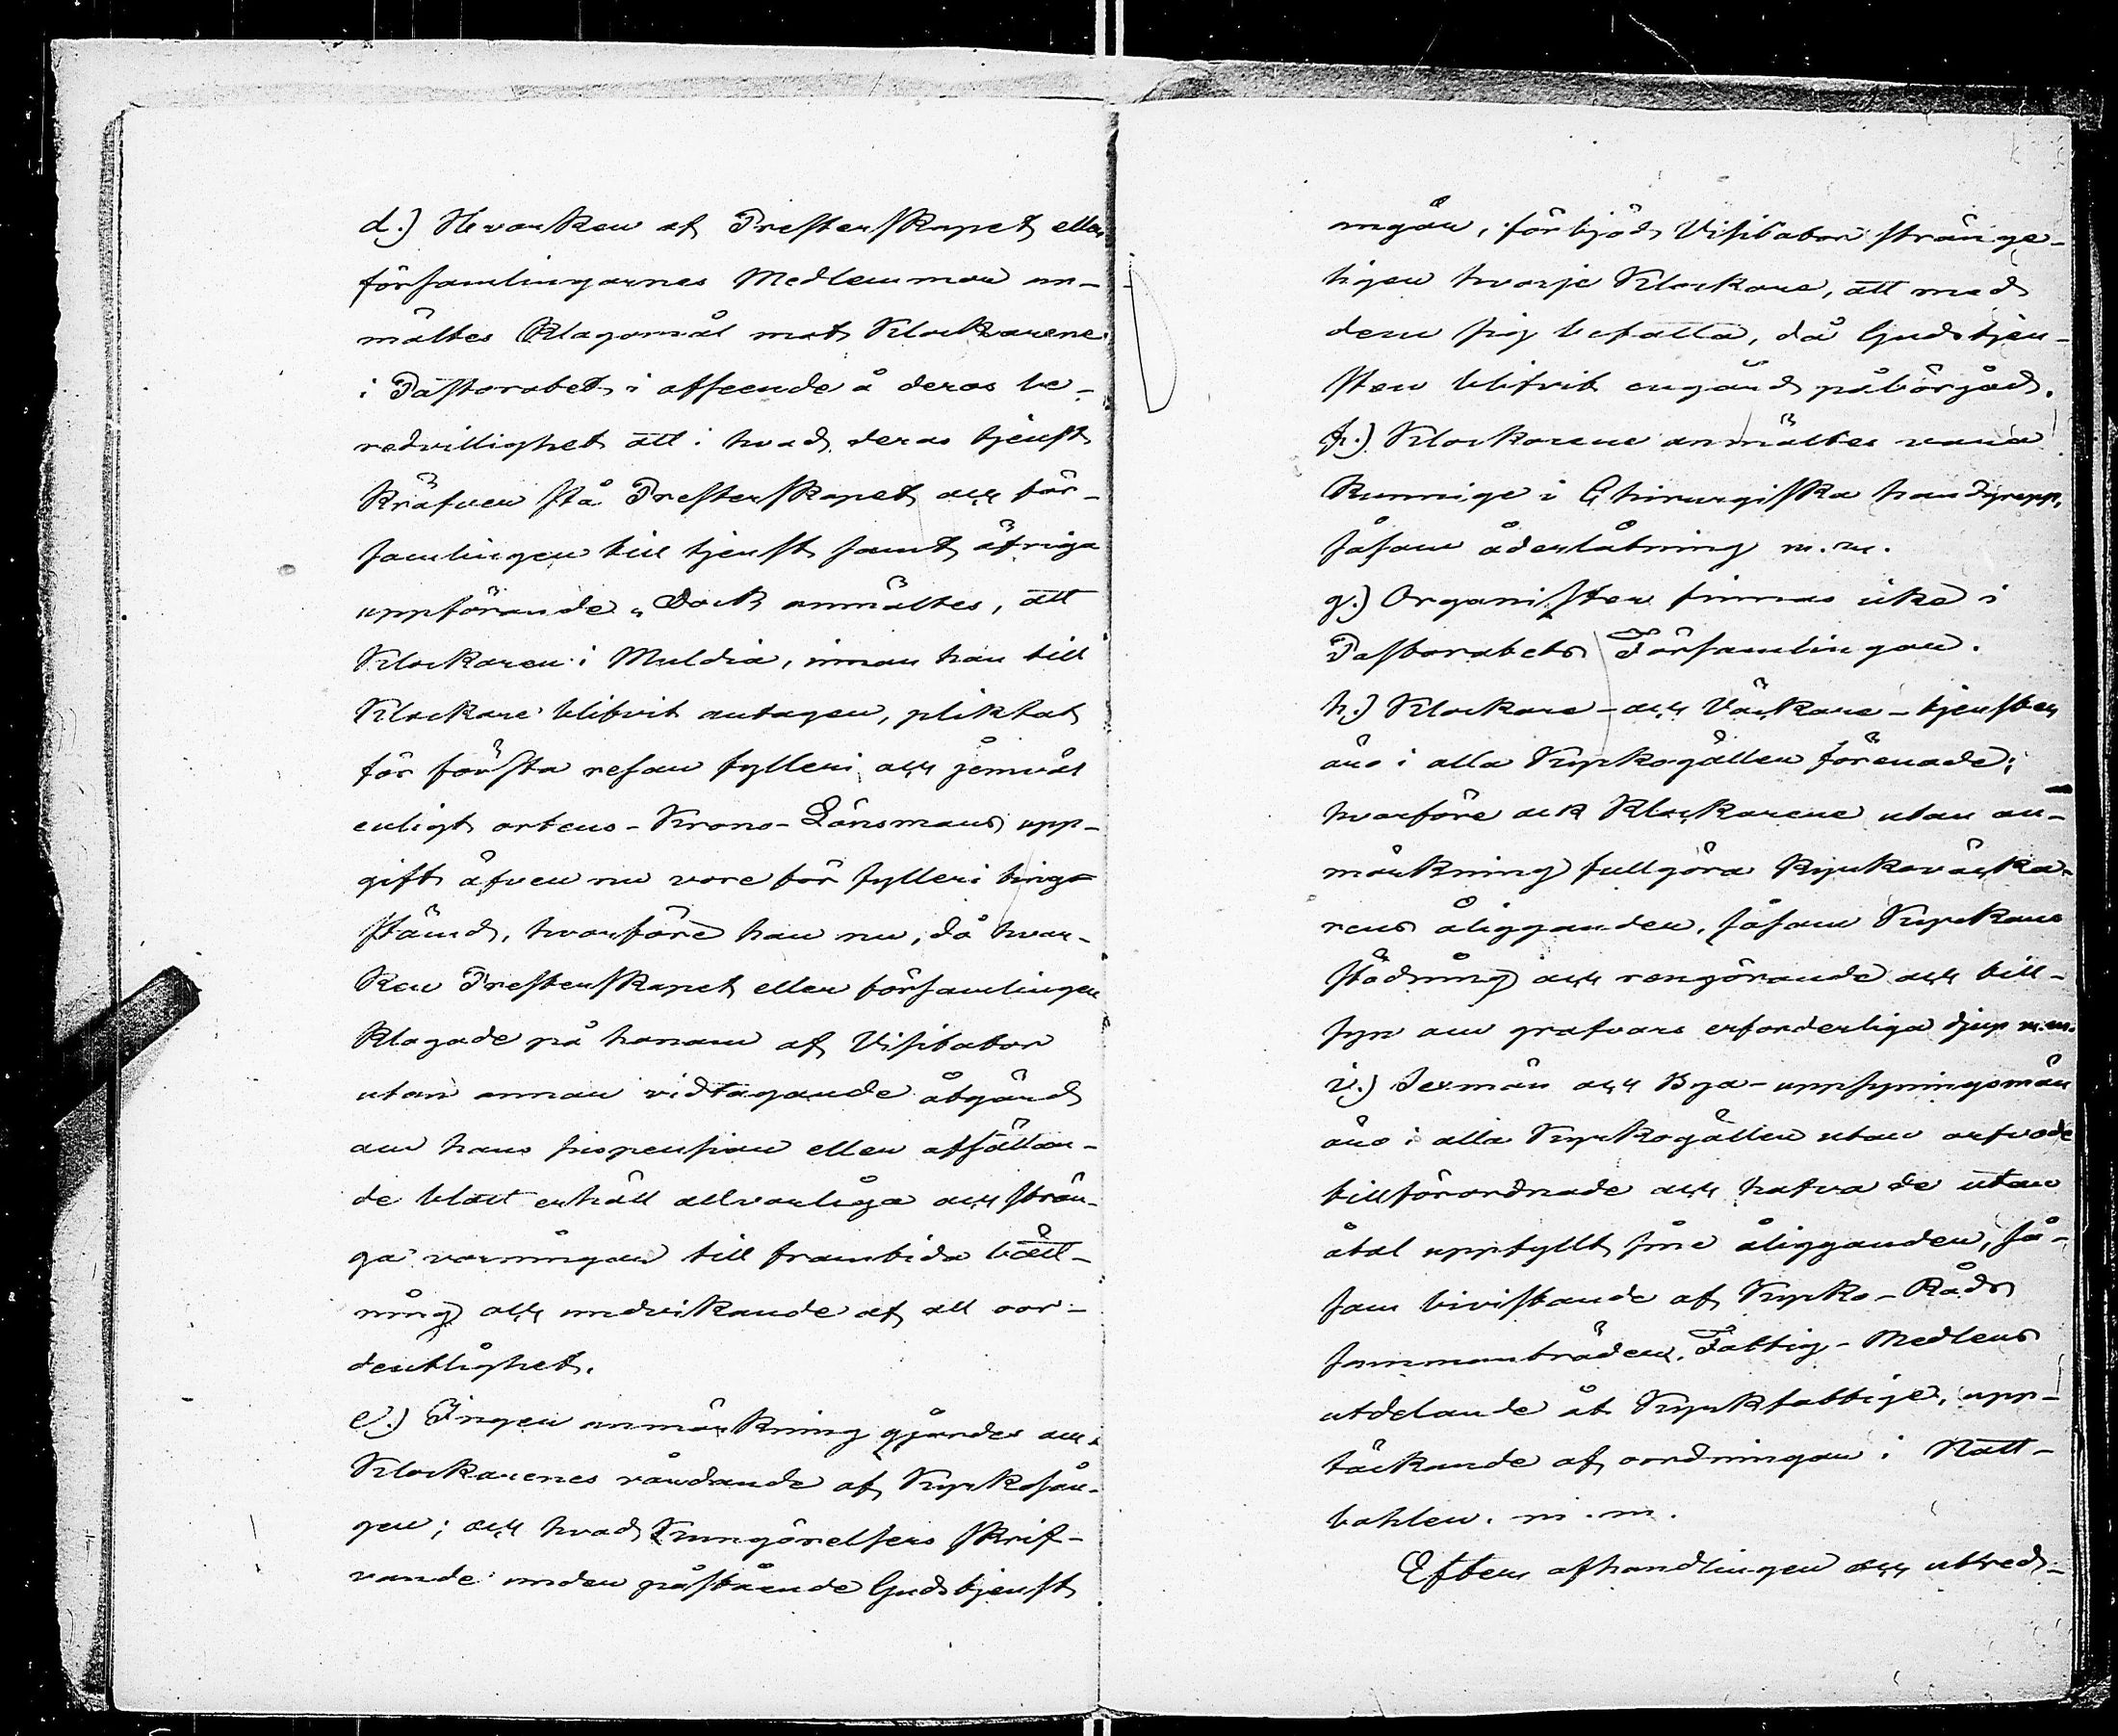 d.) Hvarken af Presterskapet eller
församlingarnes Medlemmar an-
mältes Klagomål mot Klockarene
i Pastoratet i afseende å deras be-
redvillighet att i hvad deras tjenst
kräfver stå Presterskapet och för-
samlingen till tjenst samt öfriga
uppförande. Dock anmältes, att
Klockaren i Muldia, innan han till
Klockare blifvit antagen, pliktat
för första resan fylleri och jemväl
enligt ortens-Krono-Länsmans upp-
gift äfven nu vore för fylleri tings
stämd, hvarföre han nu, då hvar-
ken Presterskapet eller församlingen
klagade på honom af Visitator
utan annan vidtagande åtgärd
om hans suspension eller affättan-
de blott erhöll allvarliga och strän-
ga varningar till framtida bätt-
ring och undvikande af all oor-
dentlighet.
e.) Ingen anmärkning gjordes om
Klockarenes vårdande af Kyrkosån-
gen; och hvad Kungörelsers skrif-
vande under påstående Gudstjenst
angår, förbjöd Visitator stränge-
ligen hvarje Klockare, att med
dem sig befatta, då Gudstjen-
sten blifvit engång påbörjad.
f.) Klockarene anmältes vara
kunnige i Chirurgiska handgrepp,
såsom åderlåtning m.m.
g.) Organister finnas icke i
Pastoratets Församlingar.
h.) Klockare- och Väckare-tjensten
äro i alla Kyrkogällen förenade;
hvarföre ock Klockarene utan an-
märkning fullgöra Kyrkoväcka-
rens åligganden, såsom Kyrkans
städning och rengörande och till-
syn om grafvars erforderliga djup m.m.
i.) Sexmän och Bya-uppsyningsmän
äro i alla Kyrkogällen utan arfvode
tillförordnade och hafva de utan
åtal uppfyllt sine åligganden, så-
som bivistande af Kyrko-Råds
sammanträden, Fattig-Medlens
utdelande åt Kyrkfattige, upp-
täckande af oordningar i Natt-
bohlen. m.m.
Efter afhandlingen och utred-